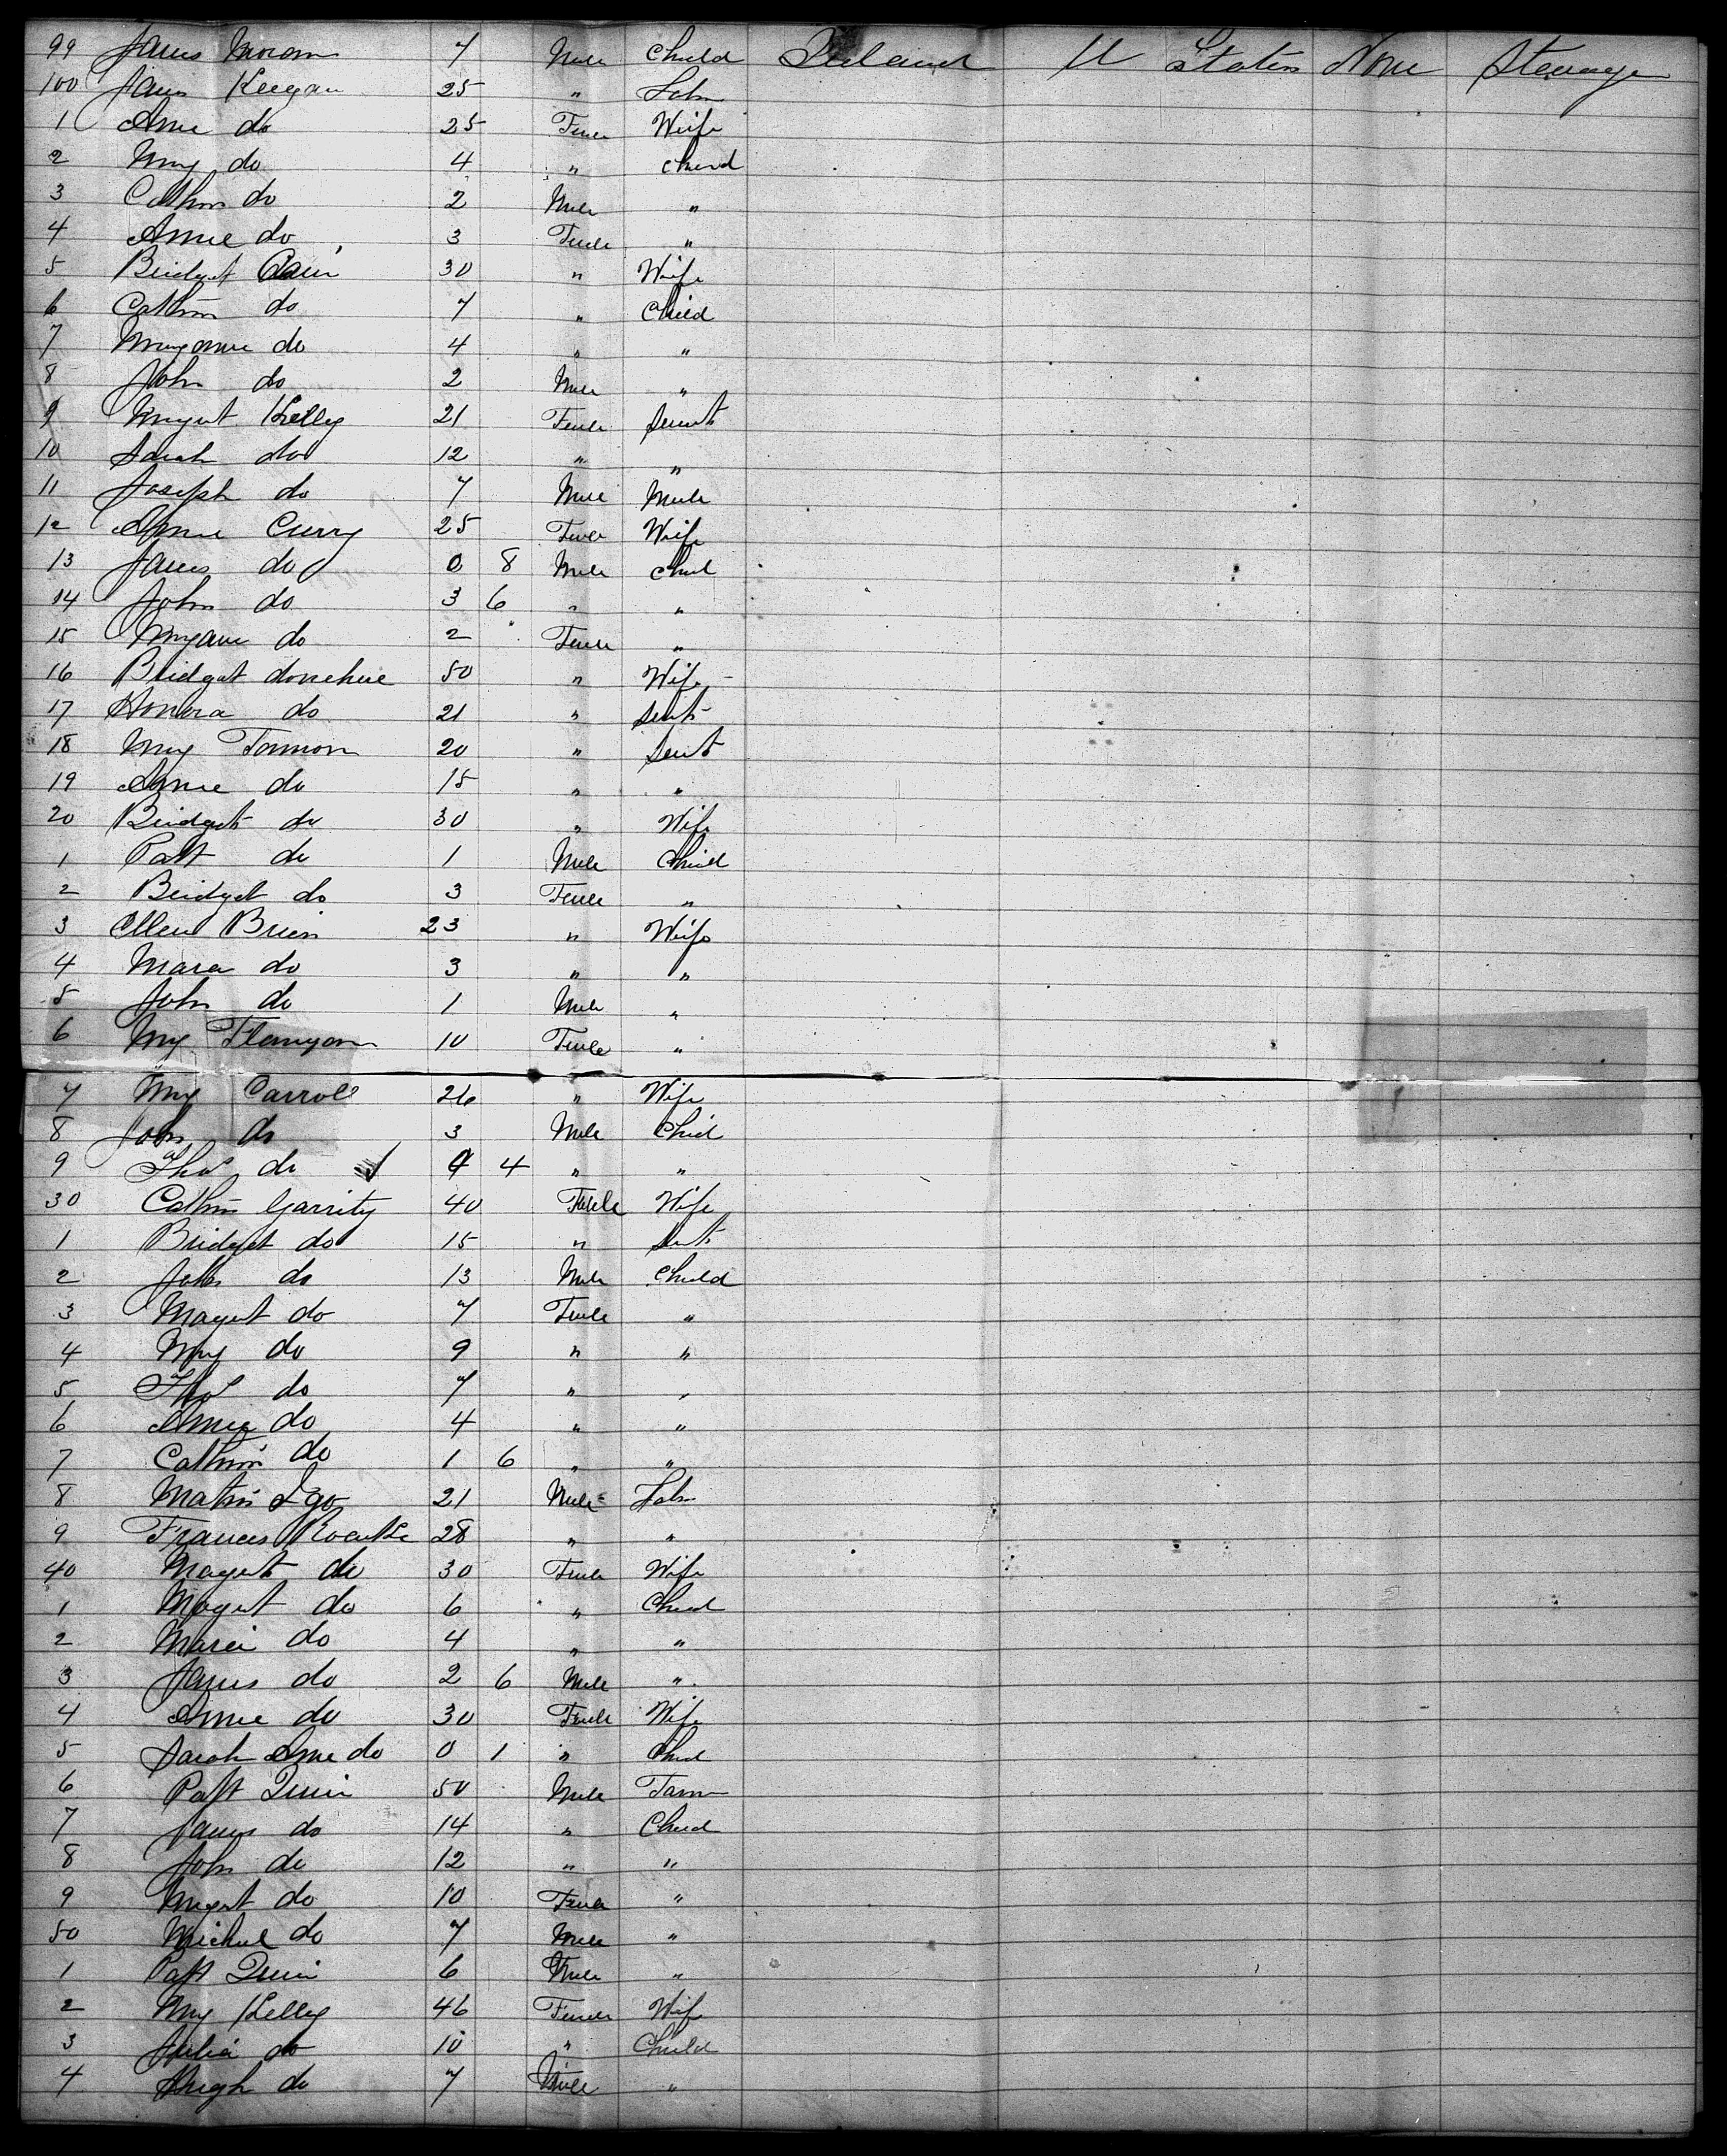 99 James Moran 7 Male Child Ireland U States None Steerage
100 James Keegan 25 " Labr
1 Anne do 25 Female Wife
2 My do 4 " Child
3 Cathn do 2 Male "
4 Anne do 3 Female "
5 Bridget 30 " Wife
6 Cathn do 7 " Child
7 Maryanne do 4 " "
8 John do 2 Male "
9 Margt Kelly 21 Female Servt
10 Sarah do 12 " "
11 Joseph do 7 Male Male
12 Anne Curry 25 Female Wife
13 James do 0 8 Male Child
14 John do 3 6 " "
15 Maryann do 2 Female "
16 Bridget donehue 50 " Wife
17 Honora do 21 " Servt
18 My 20 " Servt
19 Anne do 15 " "
20 Bridget do 30 " Wife
1 Patt do 1 Male Child
2 Bridget do 3 Female "
3 Ellen Brien 23 " Wife
4 Mara do 3 " "
5 John do 1 Male "
6 My Flanigan 10 Female "
7 My Carroll 26 " Wife
8 John do 3 Male Child
9 Thos do 4 " "
30 Cathn Garrity 40 Female Wife
1 Bridget do 15 " Servt
2 John do 13 Male Child
3 Margt do 7 Female "
4 My do 9 " "
5 Thos do 7 " "
6 Annie do 4 " "
7 Cathn do 1 6 " "
8 Matin Igo 21 Male Labr
9 Frances Rourke 28 " "
40 Margt do 30 Female Wife
1 Margt do 6 " Child
2 Maria do 4 " "
3 James do 2 6 Male "
4 Anne do 30 Female Wife
5 Sarah Anne do 0 1 " Child
6 Patt Quin 50 Male Farm
7 James do 14 " Child
8 John do 12 " "
9 Margt do 10 Female "
50 Michael do 7 Male "
1 Patt Quin 6 Male "
2 My Kelly 46 Female Wife
3 Julia do 10 " Child
4 Hugh do 7 Male "